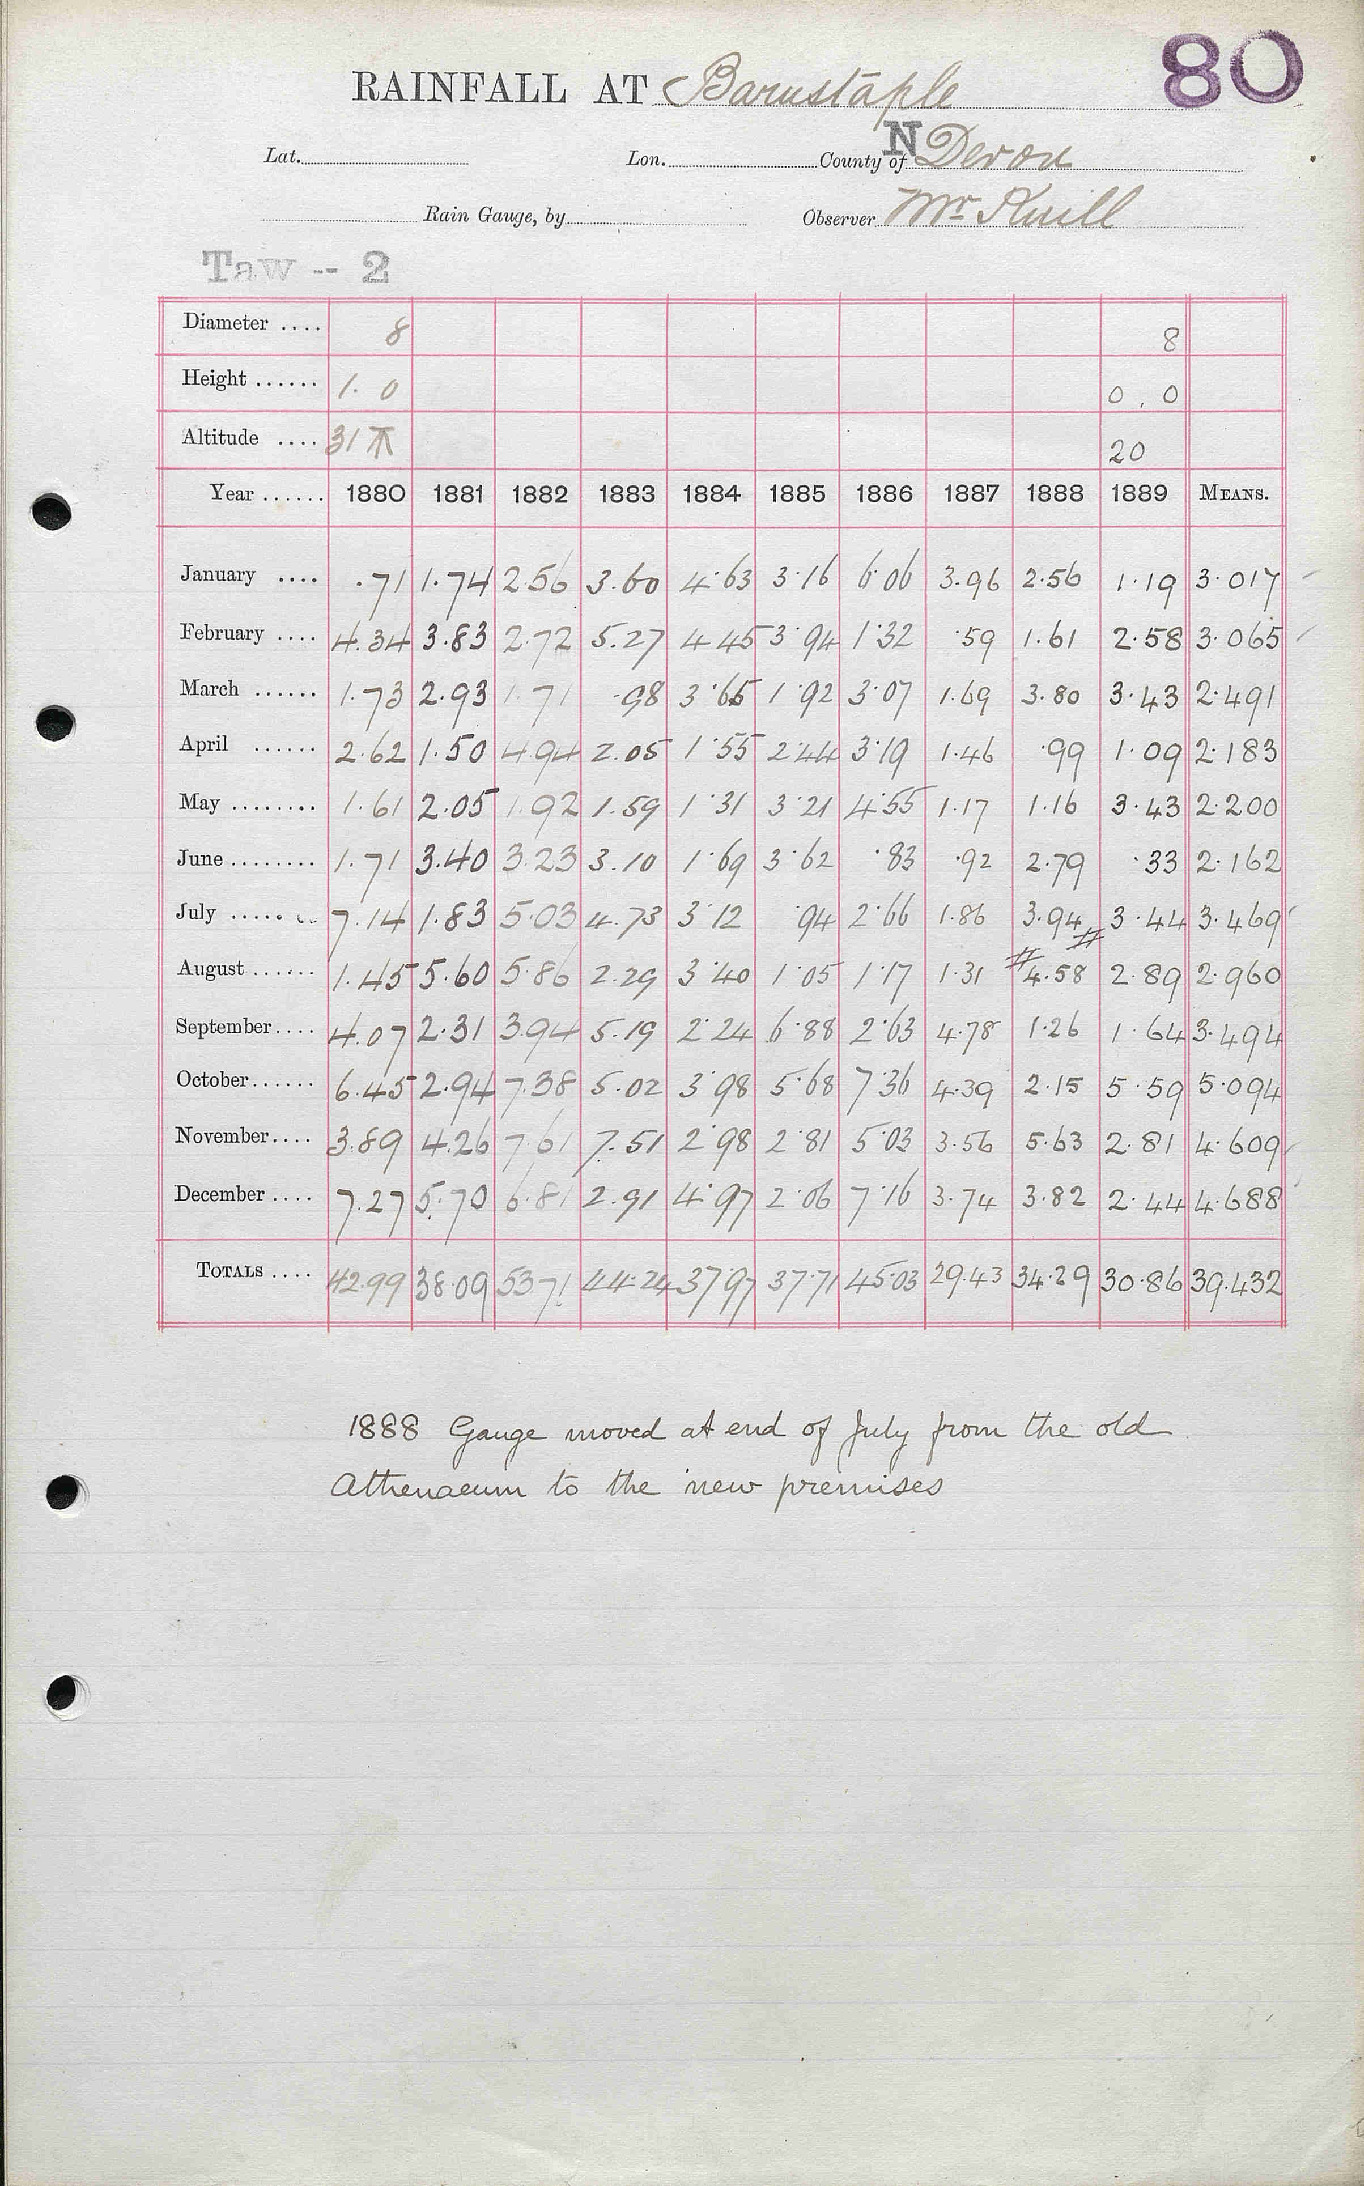 80
RAINFALL AT Barnstaple
Lat. Lon. County of N Devon
Rain Gauge, by Observer Mr Knill
Taw -- 2
Diameter .... 8 8
Height ...... 1. 0 0. 0
Altitude .... 31 20
Year ...... 1880 1881 1882 1883 1884 1885 1886 1887 1888 1889 MEANS.
January .... .71 1.74 2.56 3.60 4.63 3.16 6.06 3.96 2.56 1.19 3.017
February .... 4.34 3.83 2.72 5.27 4.45 3.94 1.32 .59 1.61 2.58 3.065
March ...... 1.73 2.93 1.71 .98 3.65 1.92 3.07 1.69 3.80 3.43 2.491
April ...... 2.62 1.50 4.94 2.05 1.55 2.44 3.19 1.46 .99 1.09 2.183
May ........ 1.61 2.05 1.92 1.59 1.31 3.21 4.55 1.17 1.16 3.43 2.200
June ........ 1.71 3.40 3.23 3.10 1.69 3.62 .83 .92 2.79 .33 2.162
July ........ 7.14 1.83 5.03 4.73 3.12 .94 2.66 1.86 3.94 3.44 3.469
August ...... 1.45 5.60 5.86 2.29 3.40 1.05 1.17 1.31 4.58 2.89 2.960
September .... 4.07 2.31 3.94 5.19 2.24 6.88 2.63 4.78 1.26 1.64 3.494
October ...... 6.45 2.94 7.38 5.02 3.98 5.68 7.36 4.39 2.15 5.59 5.094
November .... 3.89 4.26 7.61 7.51 2.98 2.81 5.03 3.56 5.63 2.81 4.609
December .... 7.27 5.70 6.81 2.91 4.97 2.06 7.16 3.74 3.82 2.44 4.688
TOTALS .... 42.99 38.09 53.71 44.24 37.97 37.71 45.03 29.43 34.29 30.86 39.432
1888 Gauge moved at end of July from the old
Athenaeum to the new premises